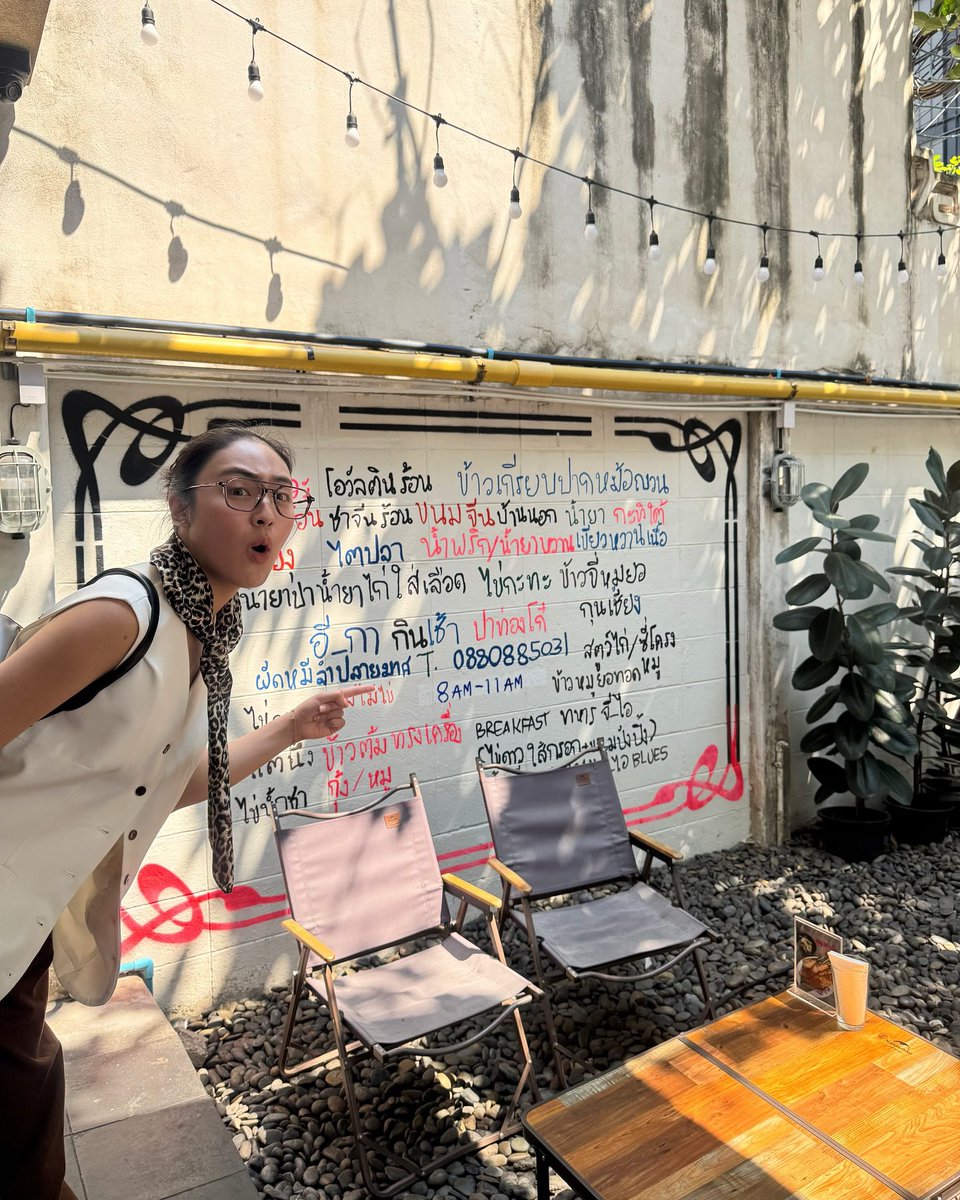 โอวัลตินร้อน ข้าวเกรียบปากหม้อญวน
ชาจีนร้อน ขนมจีนบ้านนอก น้ำยา กะทิใต้
ไตปลา น้ำพริก/น้ำยาหวาน เขียวหวานเนื้อ
น้ำยาป่าน้ำยาไก่ใส่เลือด ไข่กะทะ ข้าวจี่หมูยอ
กุนเชียง
อี กา กินเช้า ปาท่องโก๋
ผัดหมี่ลำปลายมาศ T. 0880885031 สตูว์ไก่/ซี่โครง
หมู
8AM-11AM ข้าวหมูยอทอด
ข้าวต้มทรงเครื่อง BREAKFAST ทหาร จี.ไอ
กุ้ง/หมู BLUES